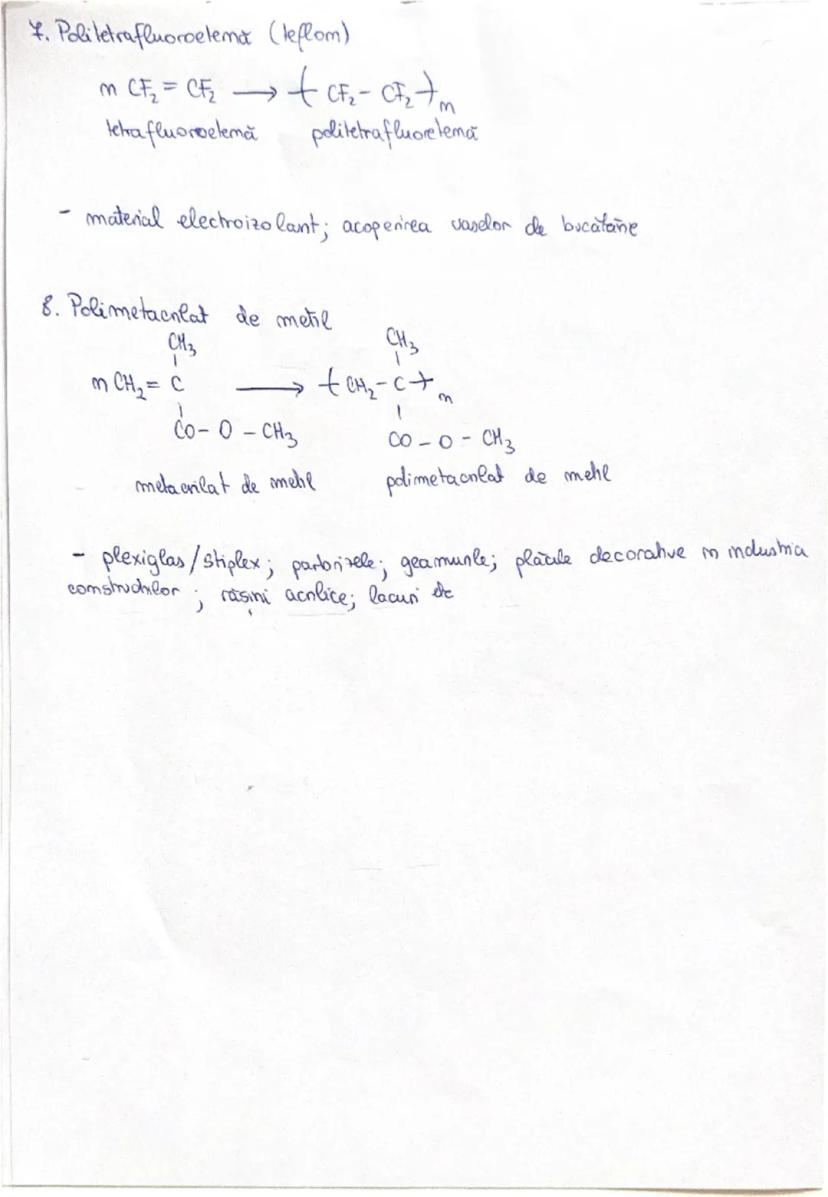 7. Politetrafluoroetenă (teflon)
n CF₂ = CF₂ → ( CF₂ – CF₂ )n
tetrafluoroetenă politetrafluoretenă
- material electroizolant; acoperirea vaselor de bucătărie
8. Polimetacrilat de metil
CH₃ CH₃
n CH₂ = C → ( CH₂ – C )n
CO – O – CH₃ CO – O – CH₃
metacrilat de metil polimetacrilat de metil
- plexiglas/stiplex; parbrizele; geamurile; plăcile decorative în industria
construcțiilor; rășini acrilice; lacuri de